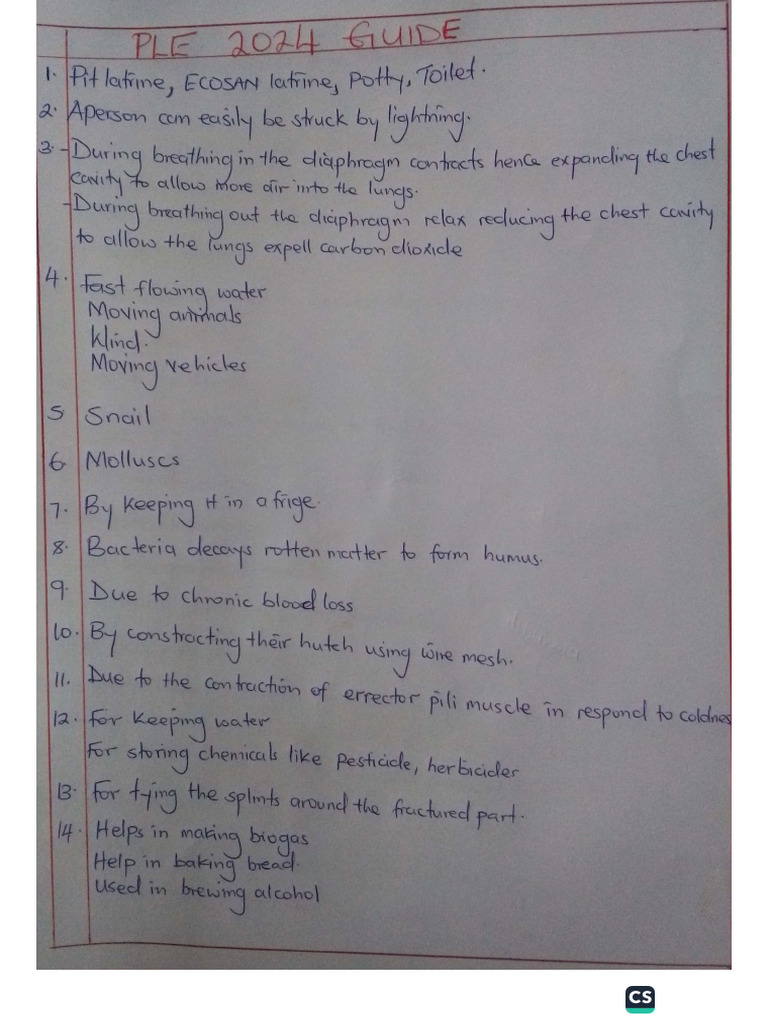 PLE 2024 GUIDE
1. Pit latrine, ECOSAN latrine, Potty, Toilet.
2. Aperson can easily be struck by lightning.
3. - During breathing in the diaphragm contracts hence expanding the chest
cavity to allow more air into the lungs.
- During breathing out the diaphragm relax reducing the chest cavity
to allow the lungs expell carbon dioxide
4. Fast flowing water
Moving animals
Wind.
Moving vehicles
5 Snail
6 Molluscs
7. By keeping it in a frige.
8. Bacteria decays rotten matter to form humus.
9. Due to chronic blood loss
10. By constructing their hutch using wire mesh.
11. Due to the contraction of errector pili muscle in respond to coldnes
12. For keeping water
For storing chemicals like pesticide, herbicider
13. For tying the splints around the fractured part.
14. Helps in making biogas
Help in baking bread.
Used in brewing alcohol
CS